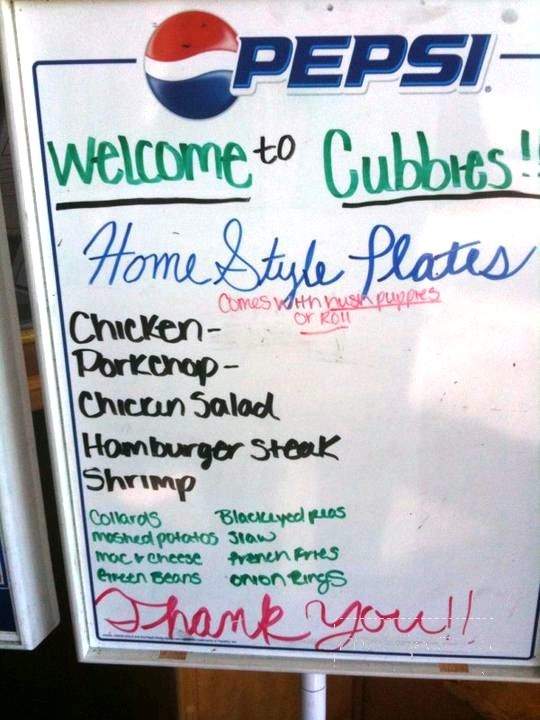 PEPSI
Welcome to Cubbies!!
Home Style Plates
Comes with hush puppies
or Roll
Chicken-
Porkchop-
Chicken Salad
Hamburger Steak
Shrimp
Collards Blackeyed peas
mashed potatos Slaw
mac & cheese French Fries
Green Beans onion Rings
Thank You!!